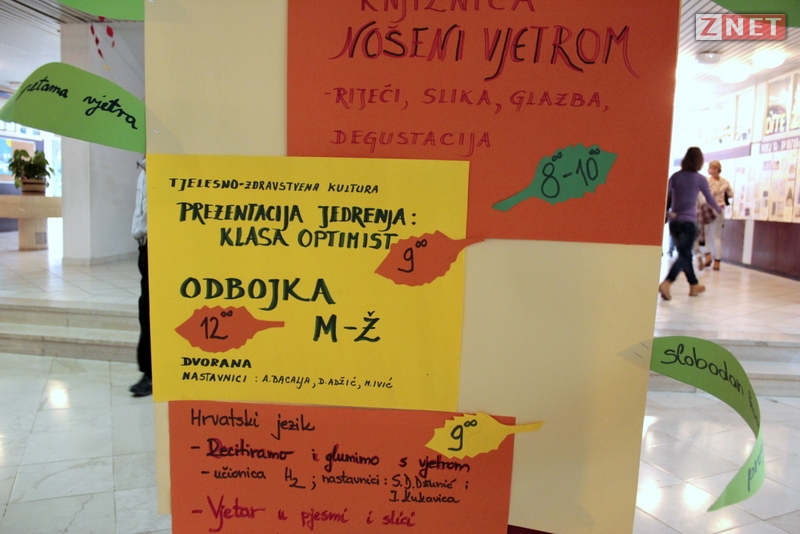 ZNET
KNJIŽNICA
NOŠENI VJETROM
-RIJEČI, SLIKA, GLAZBA,
DEGUSTACIJA
8⁰⁰-10⁰⁰
petama vjetra
TJELESNO-ZDRAVSTVENA KULTURA
PREZENTACIJA JEDRENJA:
KLASA OPTIMIST
9⁰⁰
ODBOJKA
12⁰⁰ M-Ž
DVORANA
NASTAVNICI : A.BACALJA, D.ADŽIĆ, M.IVIĆ
slobodan
Hrvatski jezik
9⁰⁰
- Recitiramo i glumimo s vjetrom
- učionica H2; nastavnici: S.D.Džunić i
I.Kukavica
- Vjetar u pjesmi i slici